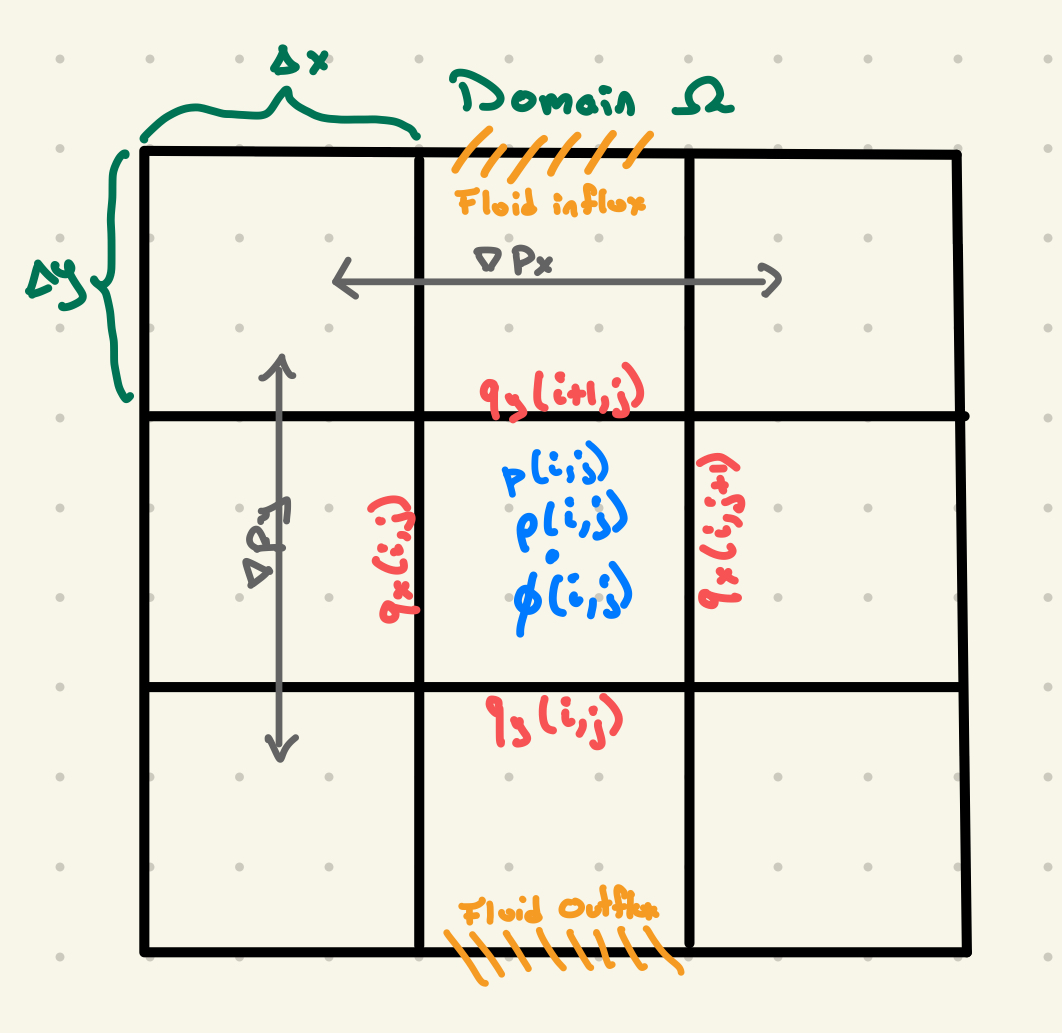 Δx
Domain Ω
Fluid influx
Δy
∇Px
qy(i+1,j)
p(i,j)
ρ(i,j)
ϕ(i,j)
∇Py
qx(i,j)
qx(i,j+1)
qy(i,j)
Fluid Outflux